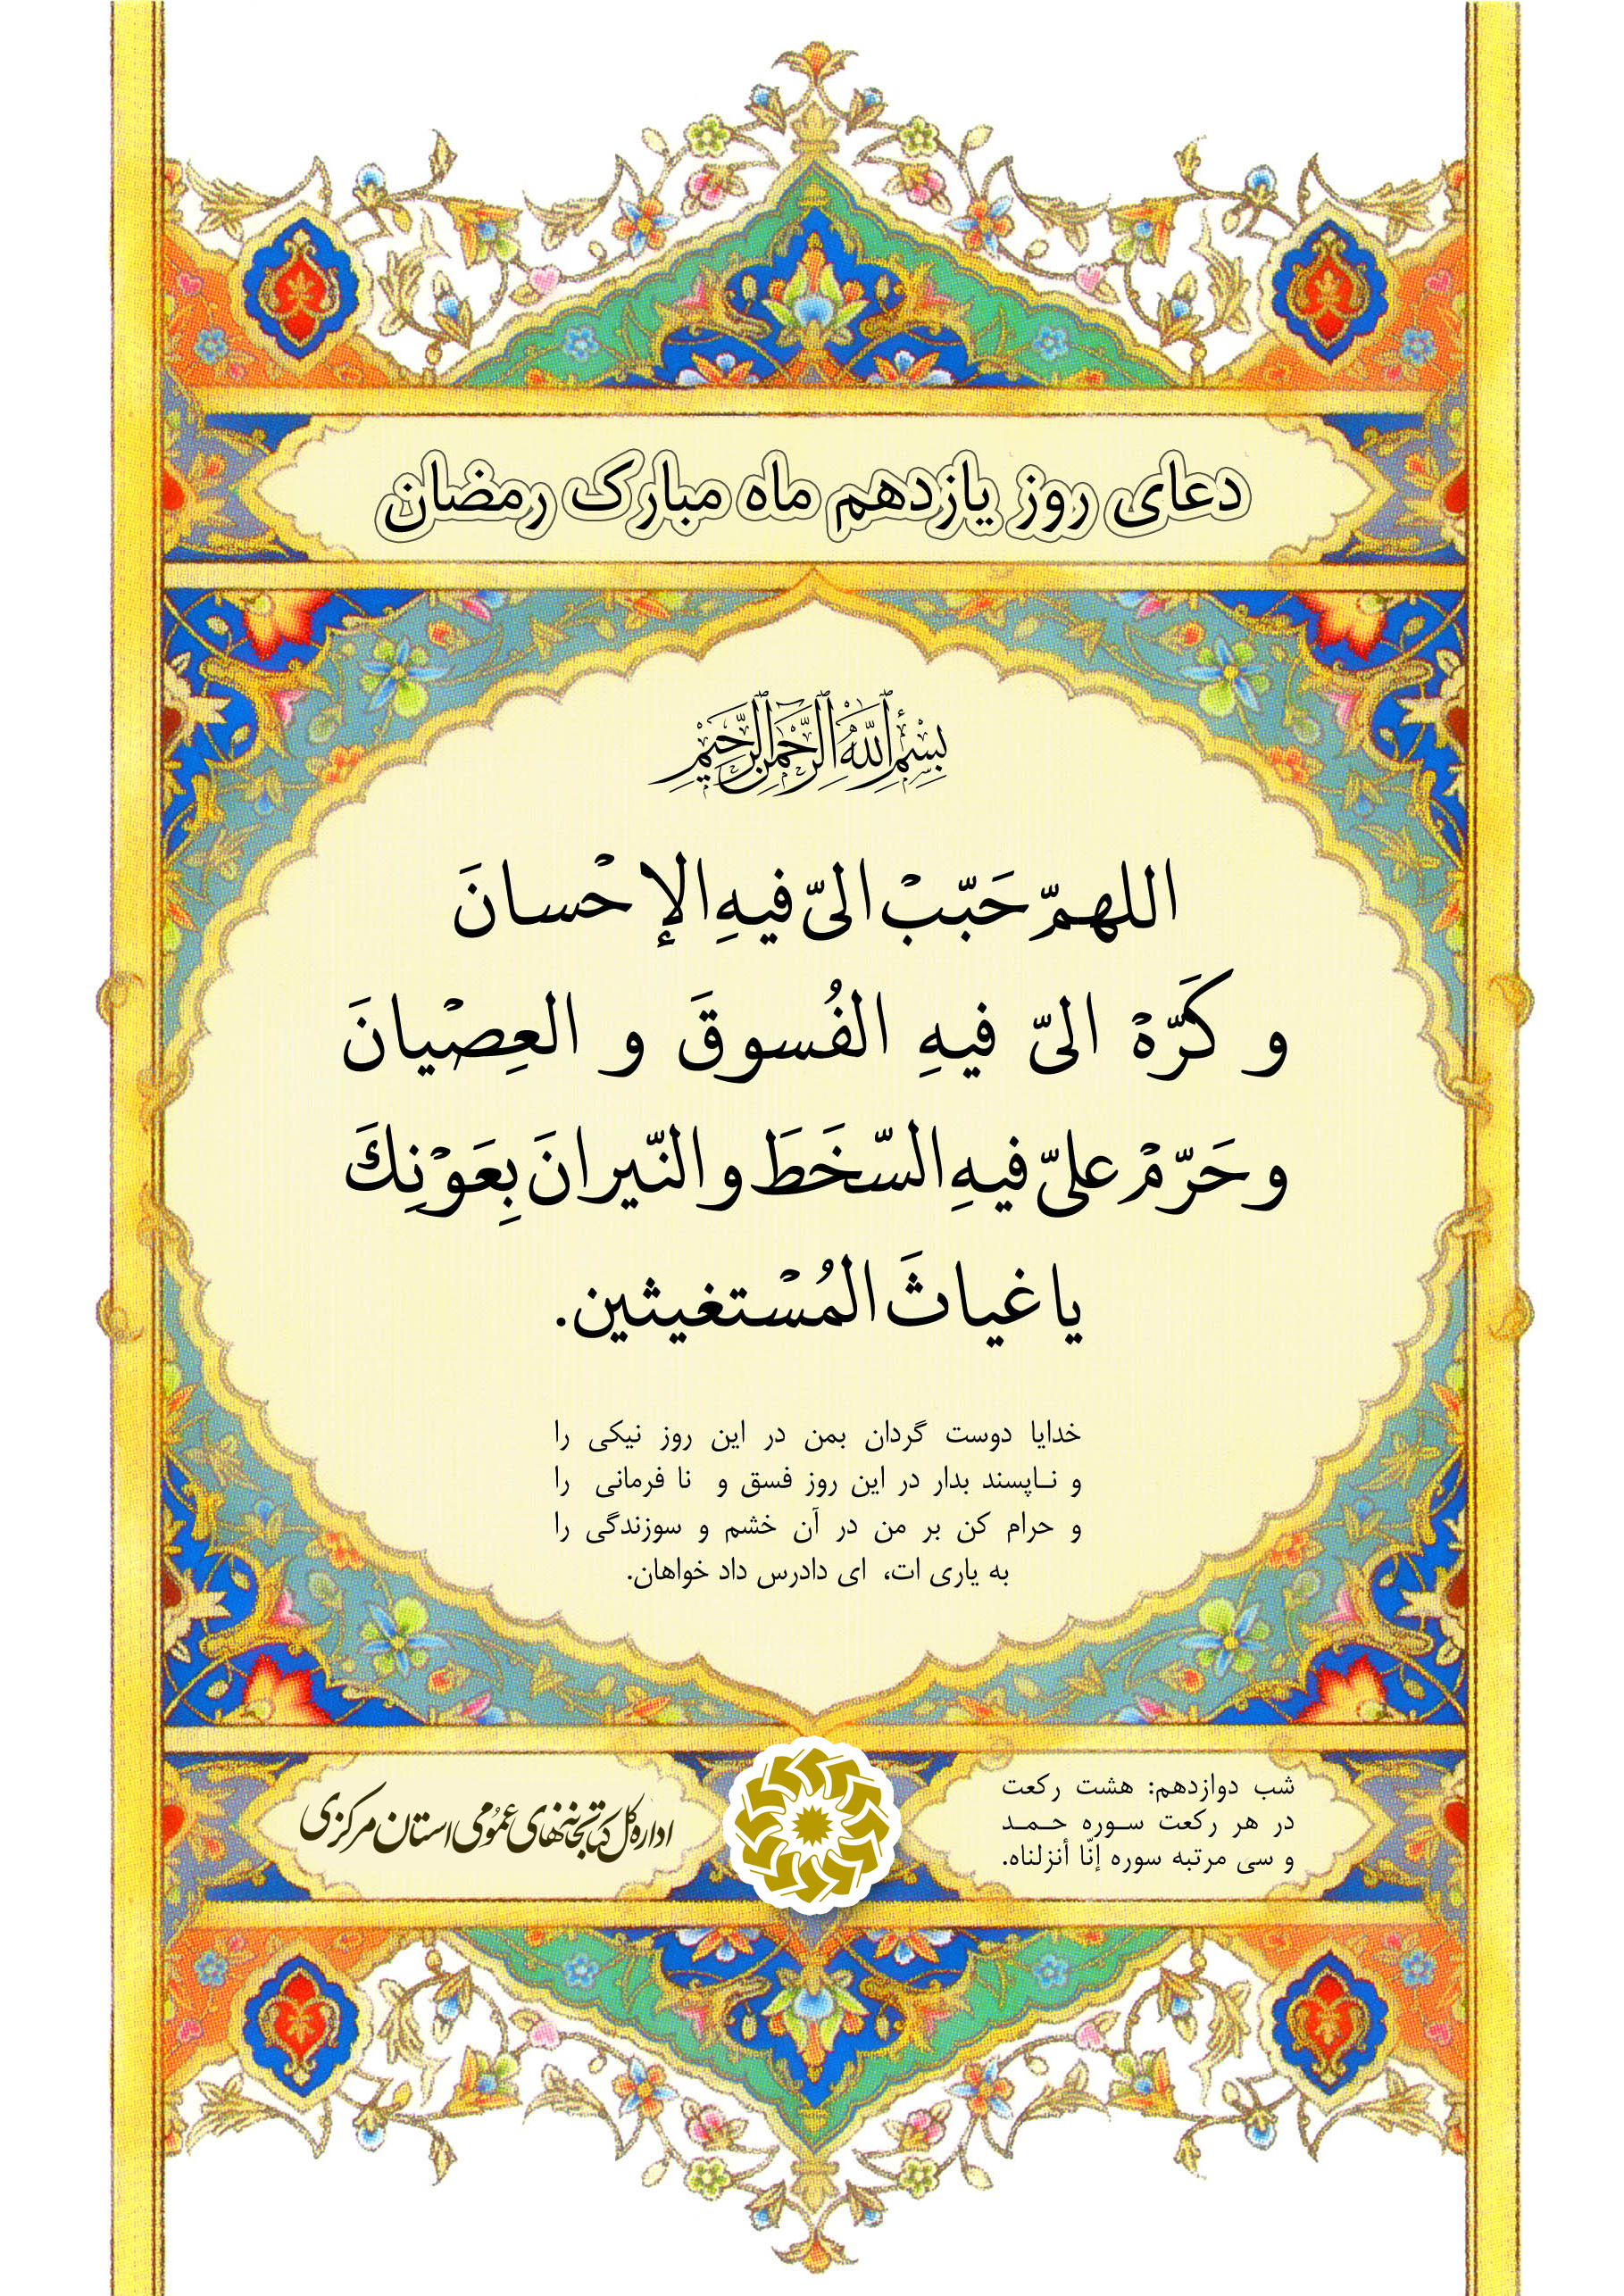 دعای روز یازدهم ماه مبارک رمضان
بِسْمِ اللَّهِ الرَّحْمَنِ الرَّحِيمِ
اللهمّ حَبّبْ الیّ فیهِ الإحْسانَ
و کَرّهْ الیّ فیهِ الفُسوقَ و العِصْیانَ
و حَرّمْ علیّ فیهِ السّخَطَ و النّیرانَ بِعَوْنِكَ
یا غیاثَ المُسْتغیثین.
خدایا دوست گردان بمن در این روز نیکی را
و نـاپسند بدار در این روز فسق و نا فرمانی را
و حرام کن بر من در آن خشم و سوزندگی را
به یاری ات، ای دادرس داد خواهان.
شب دوازدهم: هشت رکعت
در هر رکعت سـوره حـمـد
و سی مرتبه سوره إنّا أنزلناه.
اداره کل کتابخانه‌های عمُومی استان مرکزی